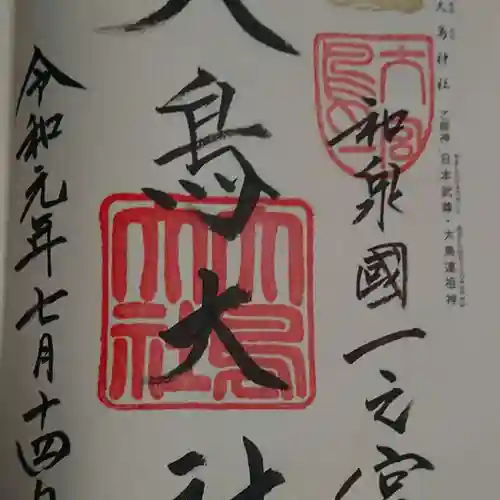 大鳥神社
乙殿神・日本武尊・大鳥連祖神
大鳥
一之宮
和泉國一元宮
大鳥大社
大鳥
大社
令和元年七月十四日